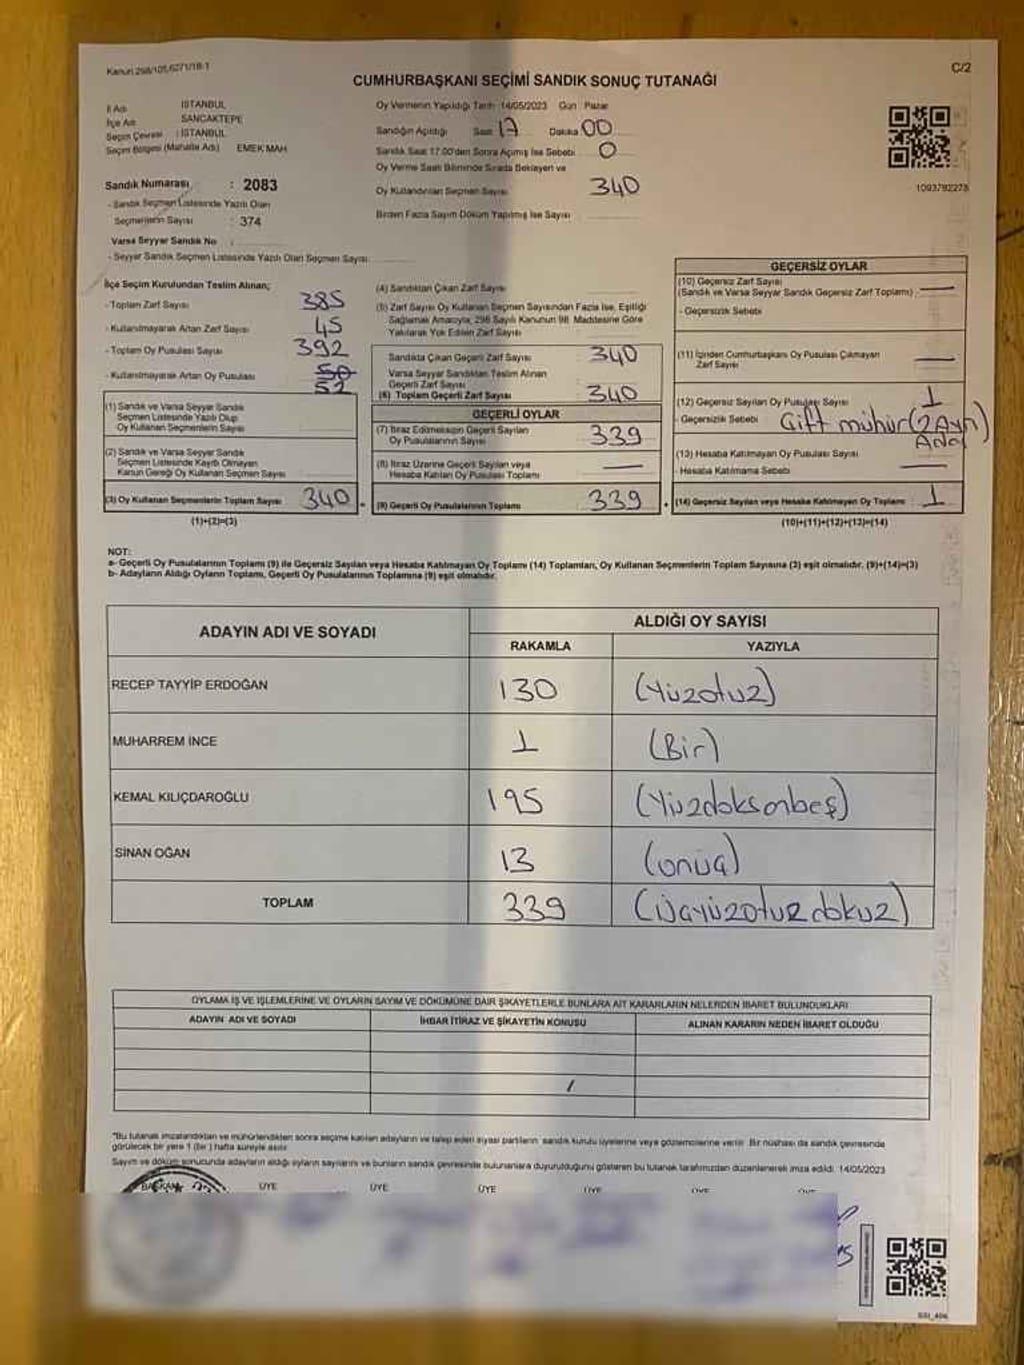 Kanun 298/105,6271/18-1
C/2
CUMHURBAŞKANI SEÇİMİ SANDIK SONUÇ TUTANAĞI
İl Adı : İSTANBUL
İlçe Adı : SANCAKTEPE
Seçim Çevresi : İSTANBUL
Seçim Bölgesi (Mahalle Adı) EMEK MAH
Sandık Numarası : 2083
- Sandık Seçmen Listesinde Yazılı Olan
Seçmenlerin Sayısı : 374
Varsa Seyyar Sandık No :
- Seyyar Sandık Seçmen Listesinde Yazılı Olan Seçmen Sayısı:
Oy Vermenin Yapıldığı Tarih :14/05/2023 Gün : Pazar
Sandığın Açıldığı Saat 17 Dakika 00
Sandık Saat 17.00'den Sonra Açılmış İse Sebebi : 0
Oy Verme Saati Bitiminde Sırada Bekleyen ve
Oy Kullandırılan Seçmen Sayısı 340
Birden Fazla Sayım Döküm Yapılmış İse Sayısı
1093792278
İlçe Seçim Kurulundan Teslim Alınan;
- Toplam Zarf Sayısı 385
- Kullanılmayarak Artan Zarf Sayısı 45
- Toplam Oy Pusulası Sayısı 392
- Kullanılmayarak Artan Oy Pusulası 50
52
(1) Sandık ve Varsa Seyyar Sandık
Seçmen Listesinde Yazılı Olup
Oy Kullanan Seçmenlerin Sayısı
(2) Sandık ve Varsa Seyyar Sandık
Seçmen Listesinde Kayıtlı Olmayan
Kanun Gereği Oy Kullanan Seçmen Sayısı
(3) Oy Kullanan Seçmenlerin Toplam Sayısı 340
(1)+(2)=(3)
(4) Sandıktan Çıkan Zarf Sayısı
(5) Zarf Sayısı Oy Kullanan Seçmen Sayısından Fazla İse, Eşitliği
Sağlamak Amacıyla, 298 Sayılı Kanunun 98. Maddesine Göre
Yakılarak Yok Edilen Zarf Sayısı
Sandıkta Çıkan Geçerli Zarf Sayısı 340
Varsa Seyyar Sandıktan Teslim Alınan
Geçerli Zarf Sayısı
(6) Toplam Geçerli Zarf Sayısı 340
GEÇERLİ OYLAR
(7) İtiraz Edilmeksizin Geçerli Sayılan
Oy Pusulalarının Sayısı 339
(8) İtiraz Üzerine Geçerli Sayılan veya
Hesaba Katılan Oy Pusulası Toplamı —
(9) Geçerli Oy Pusulalarının Toplamı 339
GEÇERSİZ OYLAR
(10) Geçersiz Zarf Sayısı
(Sandık ve Varsa Seyyar Sandık Geçersiz Zarf Toplamı) —
- Geçersizlik Sebebi
(11) İçinden Cumhurbaşkanı Oy Pusulası Çıkmayan
Zarf Sayısı —
(12) Geçersiz Sayılan Oy Pusulası Sayısı 1
- Geçersizlik Sebebi Çift mühür (2 Ayrı
Aday)
(13) Hesaba Katılmayan Oy Pusulası Sayısı —
- Hesaba Katılmama Sebebi
(14) Geçersiz Sayılan veya Hesaba Katılmayan Oy Toplamı 1
(10)+(11)+(12)+(13)=(14)
NOT:
a- Geçerli Oy Pusulalarının Toplamı (9) ile Geçersiz Sayılan veya Hesaba Katılmayan Oy Toplamı (14) Toplamları, Oy Kullanan Seçmenlerin Toplam Sayısına (3) eşit olmalıdır. (9)+(14)=(3)
b- Adayların Aldığı Oyların Toplamı, Geçerli Oy Pusulalarının Toplamına (9) eşit olmalıdır.
ADAYIN ADI VE SOYADI
ALDIĞI OY SAYISI
RAKAMLA YAZIYLA
RECEP TAYYİP ERDOĞAN 130 (Yüzotuz)
MUHARREM İNCE 1 (Bir)
KEMAL KILIÇDAROĞLU 195 (Yüzdoksanbeş)
SİNAN OĞAN 13 (onüç)
TOPLAM 339 (Üçyüzotuzdokuz)
OYLAMA İŞ VE İŞLEMLERİNE VE OYLARIN SAYIM VE DÖKÜMÜNE DAİR ŞİKAYETLERLE BUNLARA AİT KARARLARIN NELERDEN İBARET BULUNDUKLARI
ADAYIN ADI VE SOYADI İHBAR İTİRAZ VE ŞİKAYETİN KONUSU ALINAN KARARIN NEDEN İBARET OLDUĞU
/
"Bu tutanak imzalandıktan ve mühürlendikten sonra seçime katılan adayların ve talep eden siyasi partilerin sandık kurulu üyelerine veya gözlemcilerine verilir. Bir nüshası da sandık çevresinde
görülecek bir yere 1 (bir) hafta süreyle asılır.
Sayım ve döküm sonucunda adayların aldığı oyların sayılarını ve bunların sandık çevresinde bulunanlara duyurulduğunu gösteren bu tutanak tarafımızdan düzenlenerek imza edildi. 14/05/2023
BAŞKAN ÜYE ÜYE ÜYE ÜYE ÜYE ÜYE